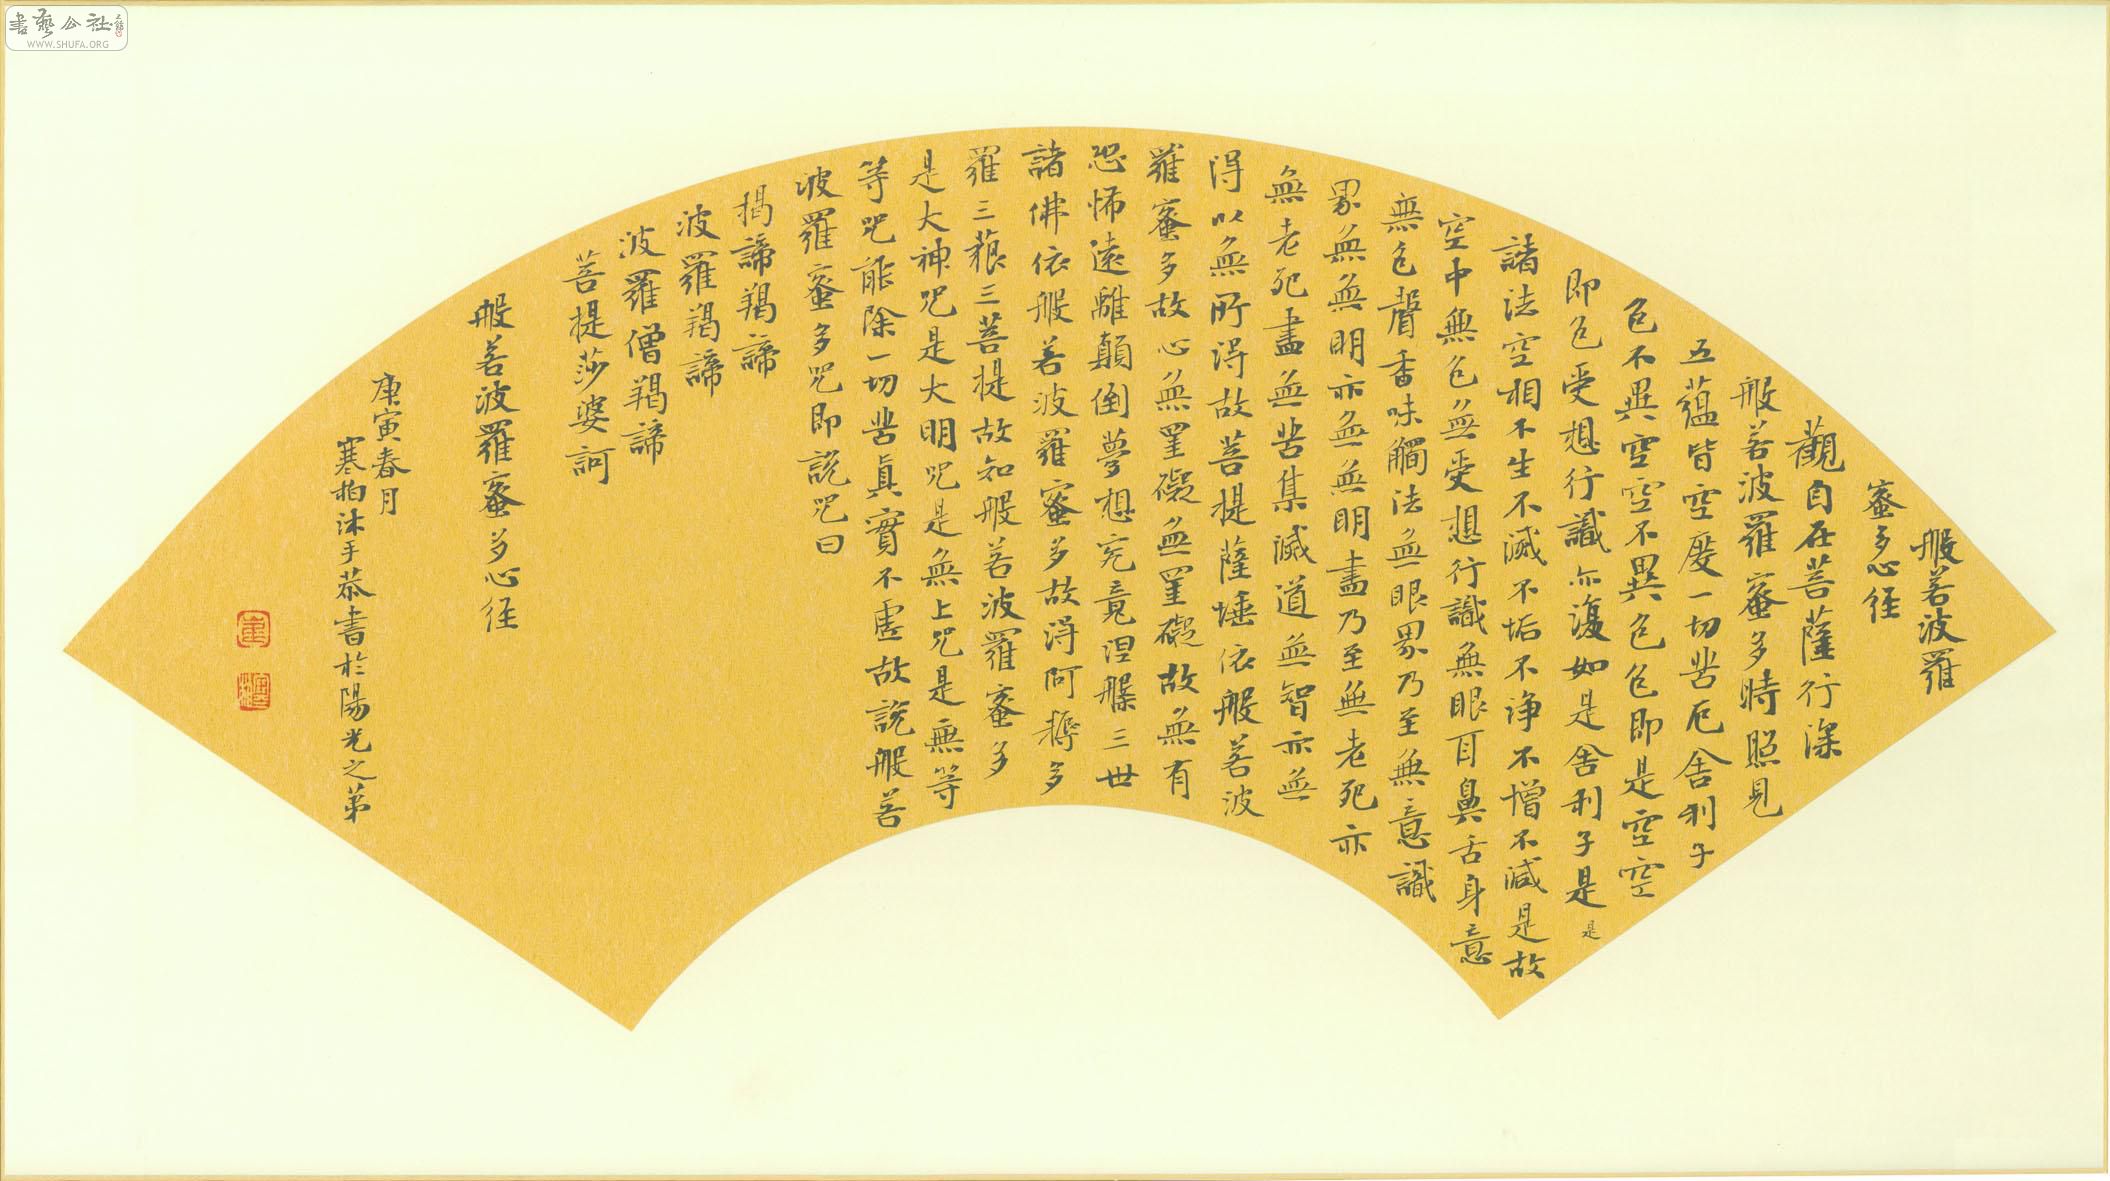 般若波羅
蜜多心径
觀自在菩薩行深
般若波羅蜜多時照見
五蕴皆空度一切苦厄舍利子
色不異空空不異色色即是空空
即色受想行識亦復如是舍利子是是
諸法空相不生不滅不垢不净不增不减是故
空中無色無受想行識無眼耳鼻舌身意
無色聲香味觸法無眼界乃至無意識
界無無明亦無無明盡乃至無老死亦
無老死盡無苦集滅道無智亦無
得以無所得故菩提薩埵依般若波
羅蜜多故心無罣礙無罣礙故無有
恐怖遠離顛倒夢想究竟涅槃三世
諸佛依般若波羅蜜多故得阿耨多
羅三藐三菩提故知般若波羅蜜多
是大神咒是大明咒是無上咒是無等
等咒能除一切苦真實不虛故說般若
波羅蜜多咒即說咒曰
揭諦羯諦
波羅羯諦
波羅僧羯諦
菩提莎婆訶
般若波羅蜜多心径
庚寅春月
寒柏沐手恭書於陽光之第
書藝公社
WWW.SHUFA.ORG